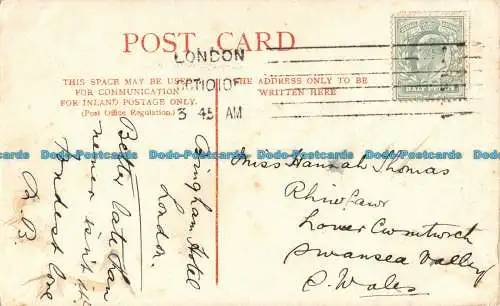 POST CARD
THIS SPACE MAY BE USED
FOR COMMUNICATION
FOR INLAND POSTAGE ONLY.
(Post Office Regulation.)
THE ADDRESS ONLY TO BE
WRITTEN HERE
LONDON
3 45 AM
HALFPENNY
Bingham Hotel
London.
Better late than
never isn't it
Fondest love
Miss Hannah Thomas
Rhiwfawr
Lower Cwmtwrch
Swansea Valley
S. Wales
Dodo-Postcards Dodo-Postcards Dodo-Postcards Dodo-Postcards Dodo-Postcards Dodo-Postcards